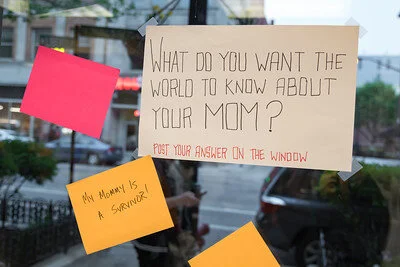 WHAT DO YOU WANT THE
WORLD TO KNOW ABOUT
YOUR MOM?
POST YOUR ANSWER ON THE WINDOW
MY MOMMY IS
A SURVIVOR!